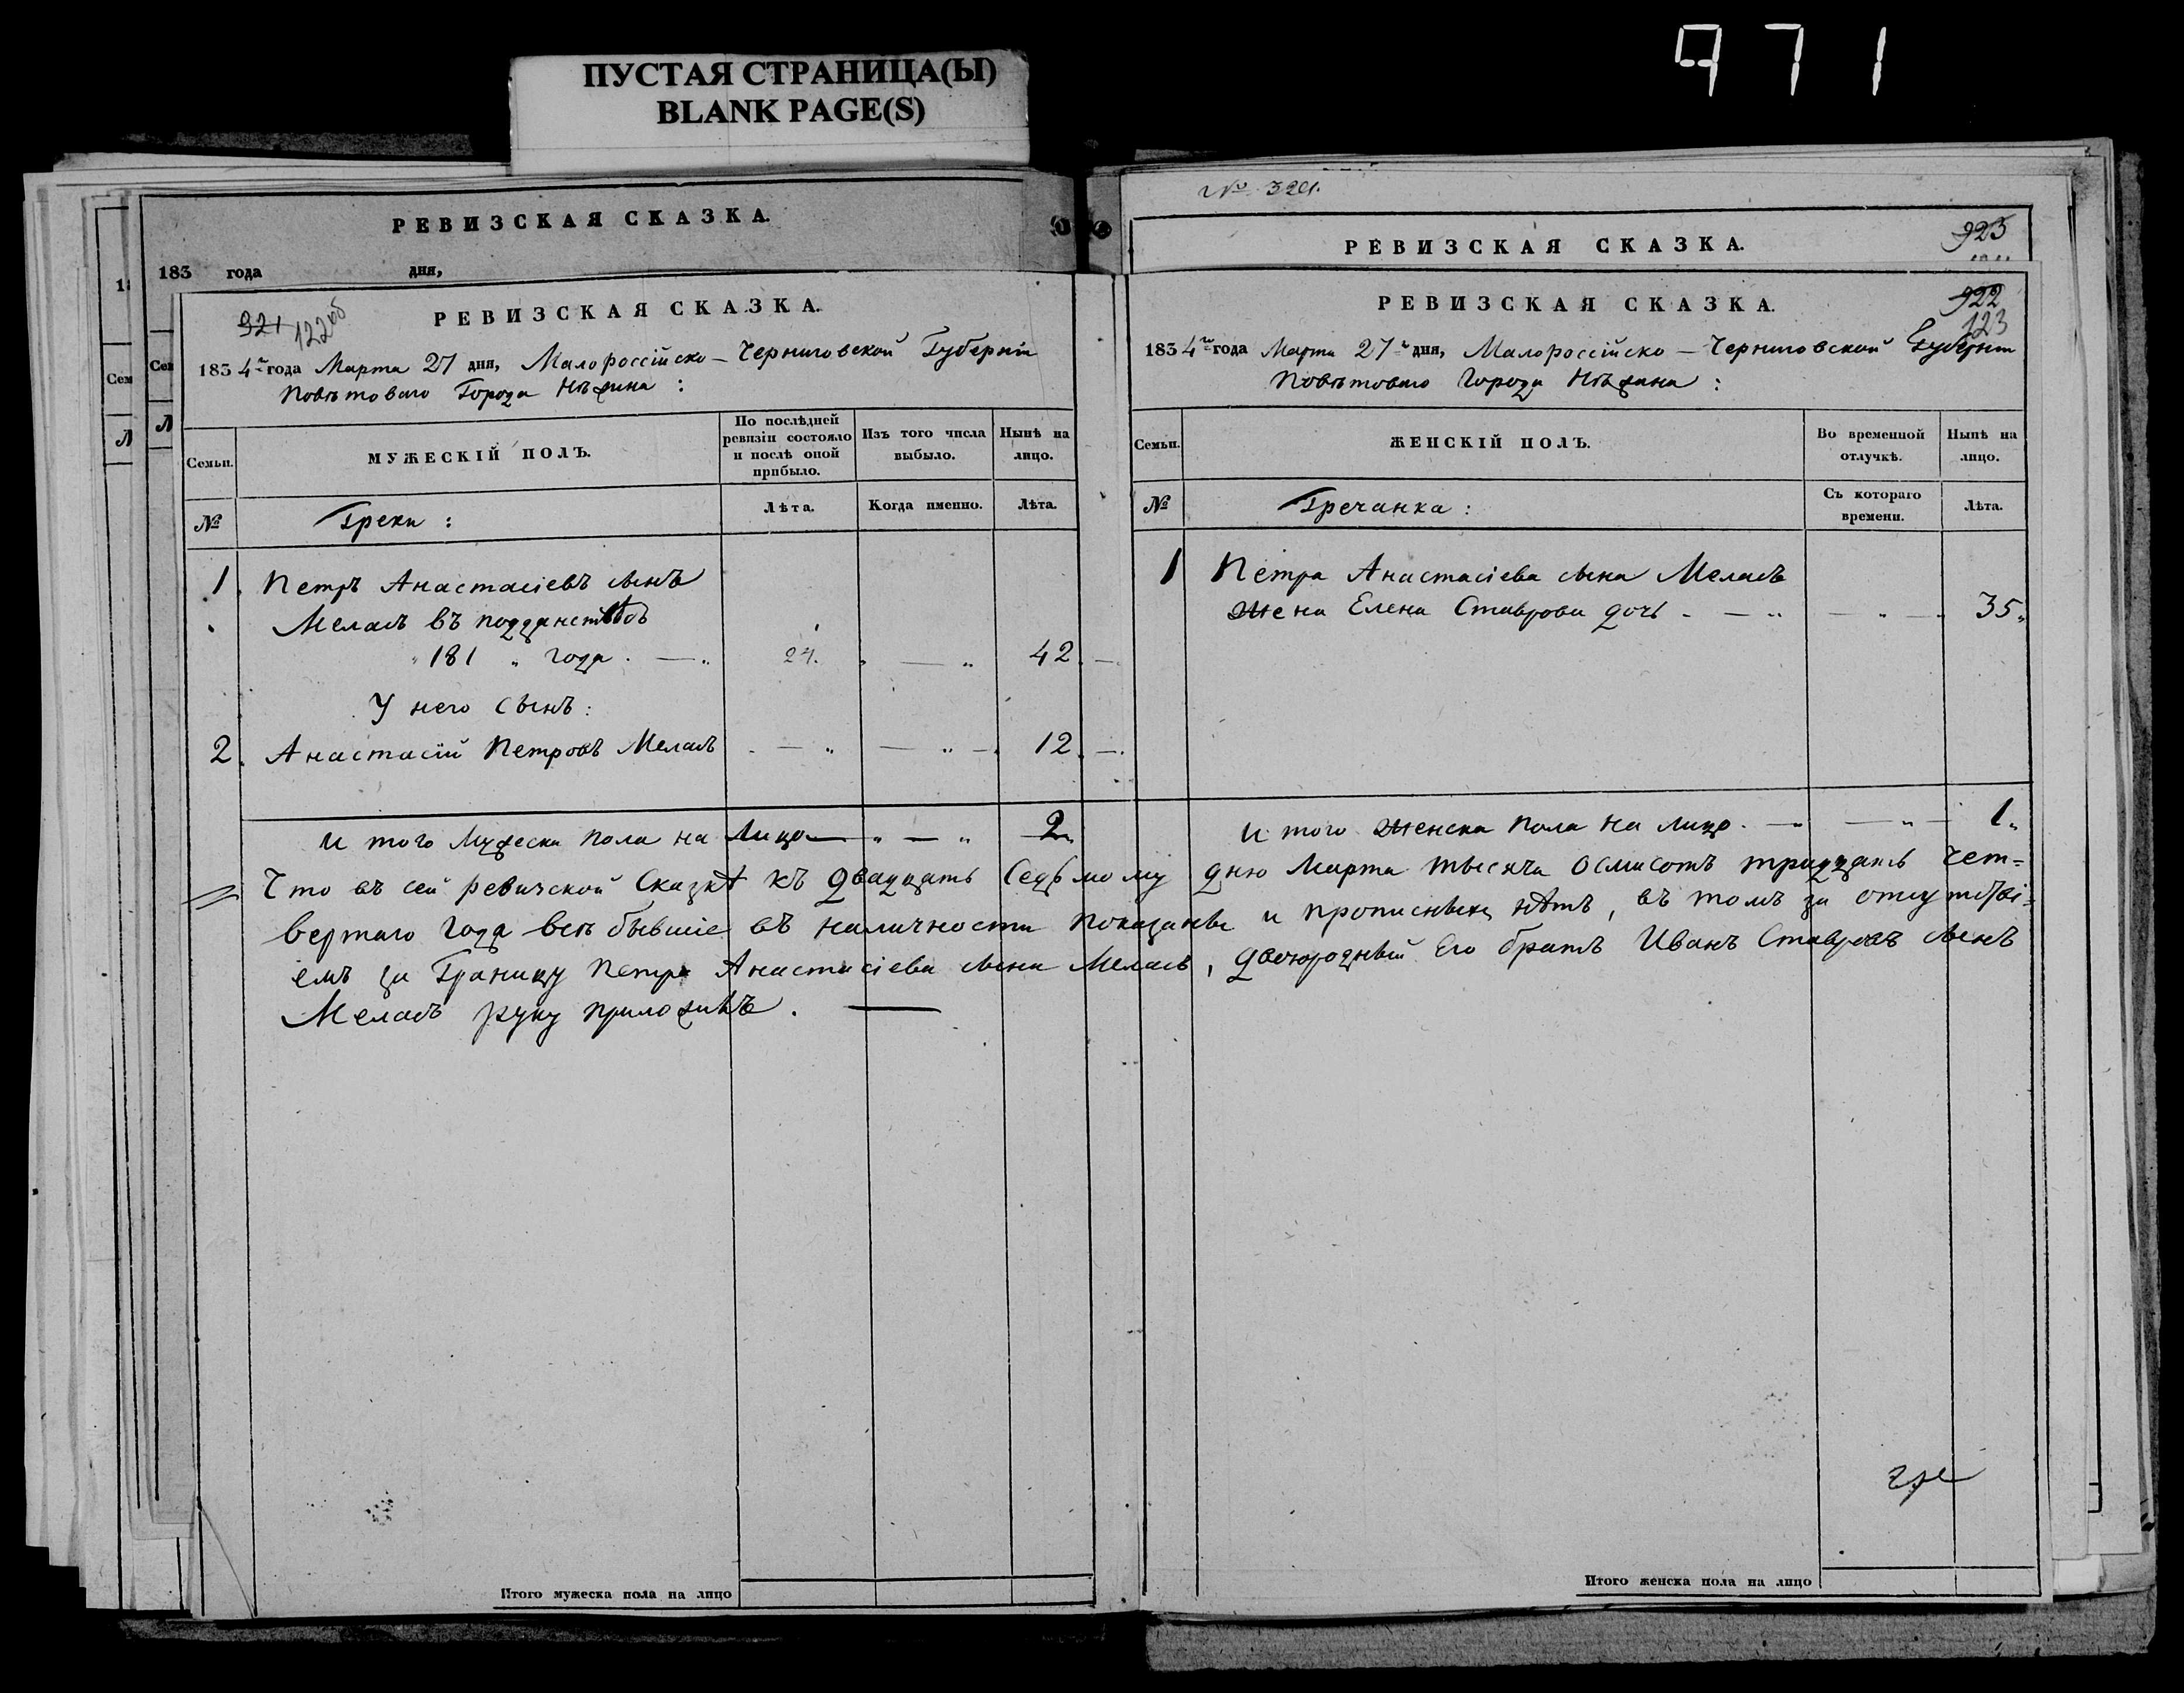 971
ПУСТАЯ СТРАНИЦА(Ы)
BLANK PAGE(S)
РЕВИЗСКАЯ СКАЗКА.
183 года дня,
РЕВИЗСКАЯ СКАЗКА.
921
1834го года Марта 27 дня, Малороссійско – Черниговской Губерніи
Повѣтоваго Города Нѣжина :
Семьи.
МУЖЕСКІЙ ПОЛЪ.
По послѣдней ревизіи состояло и послѣ оной прибыло.
Изъ того числа выбыло.
Нынѣ на лицо.
№
Греки :
Лѣта.
Когда именно.
Лѣта.
1. Петръ Анастасіевъ сынъ
Меласъ въ подданствѣ съ
" 181 " года. — " 24. " — " 42. —
У него сынъ:
2. Анастасій Петровъ Меласъ - — " — " — 12. —
И того Мужеска пола на Лицо — " — " 2.
№ 321.
РЕВИЗСКАЯ СКАЗКА.
923
РЕВИЗСКАЯ СКАЗКА.
922
123
1834го года Марта 27го дня, Малороссійско – Черниговской Губерніи
Повѣтоваго Города Нѣжина :
Семьи.
ЖЕНСКІЙ ПОЛЪ.
Во временной отлучкѣ.
Нынѣ на лицо.
№
Гречанка :
Съ котораго времени.
Лѣта.
1 Петра Анастасіева сына Меласъ
Жена Елена Ставрова дочь - — " — " — 35"
И того Женска пола на лицо. — " — " — 1"
Что въ сей ревизской Сказкѣ къ Двадцать Седьмому дню Марта тысяча осмисотъ тридцать чет=
вертаго года всѣ бывшіе въ наличности показаны и прописныхъ нѣтъ, въ томъ за отсутстві=
емъ за Границу Петра Анастасіева сына Меласъ, двоюродный Его братъ Иванъ Ставровъ сынъ
Меласъ руку приложилъ. —
Итого мужеска пола на лицо
Итого женска пола на лицо